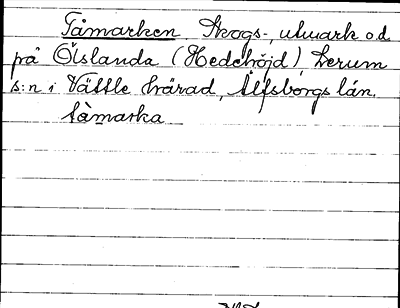 Tåmarken Skogs-, utmark o.d.
på Ölslanda (Hedehöjd) Lerum
s:n i Vättle härad, Älfsborgs län.
tåmarka